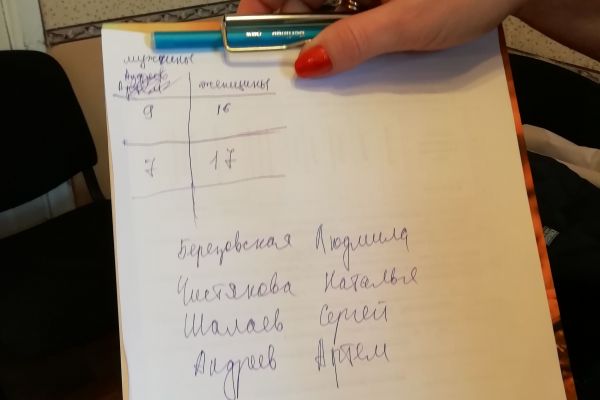 мужчины
женщины
9 16
7 17
Березовская Людмила
Чистякова Наталья
Шалаев Сергей
Андреев Артем